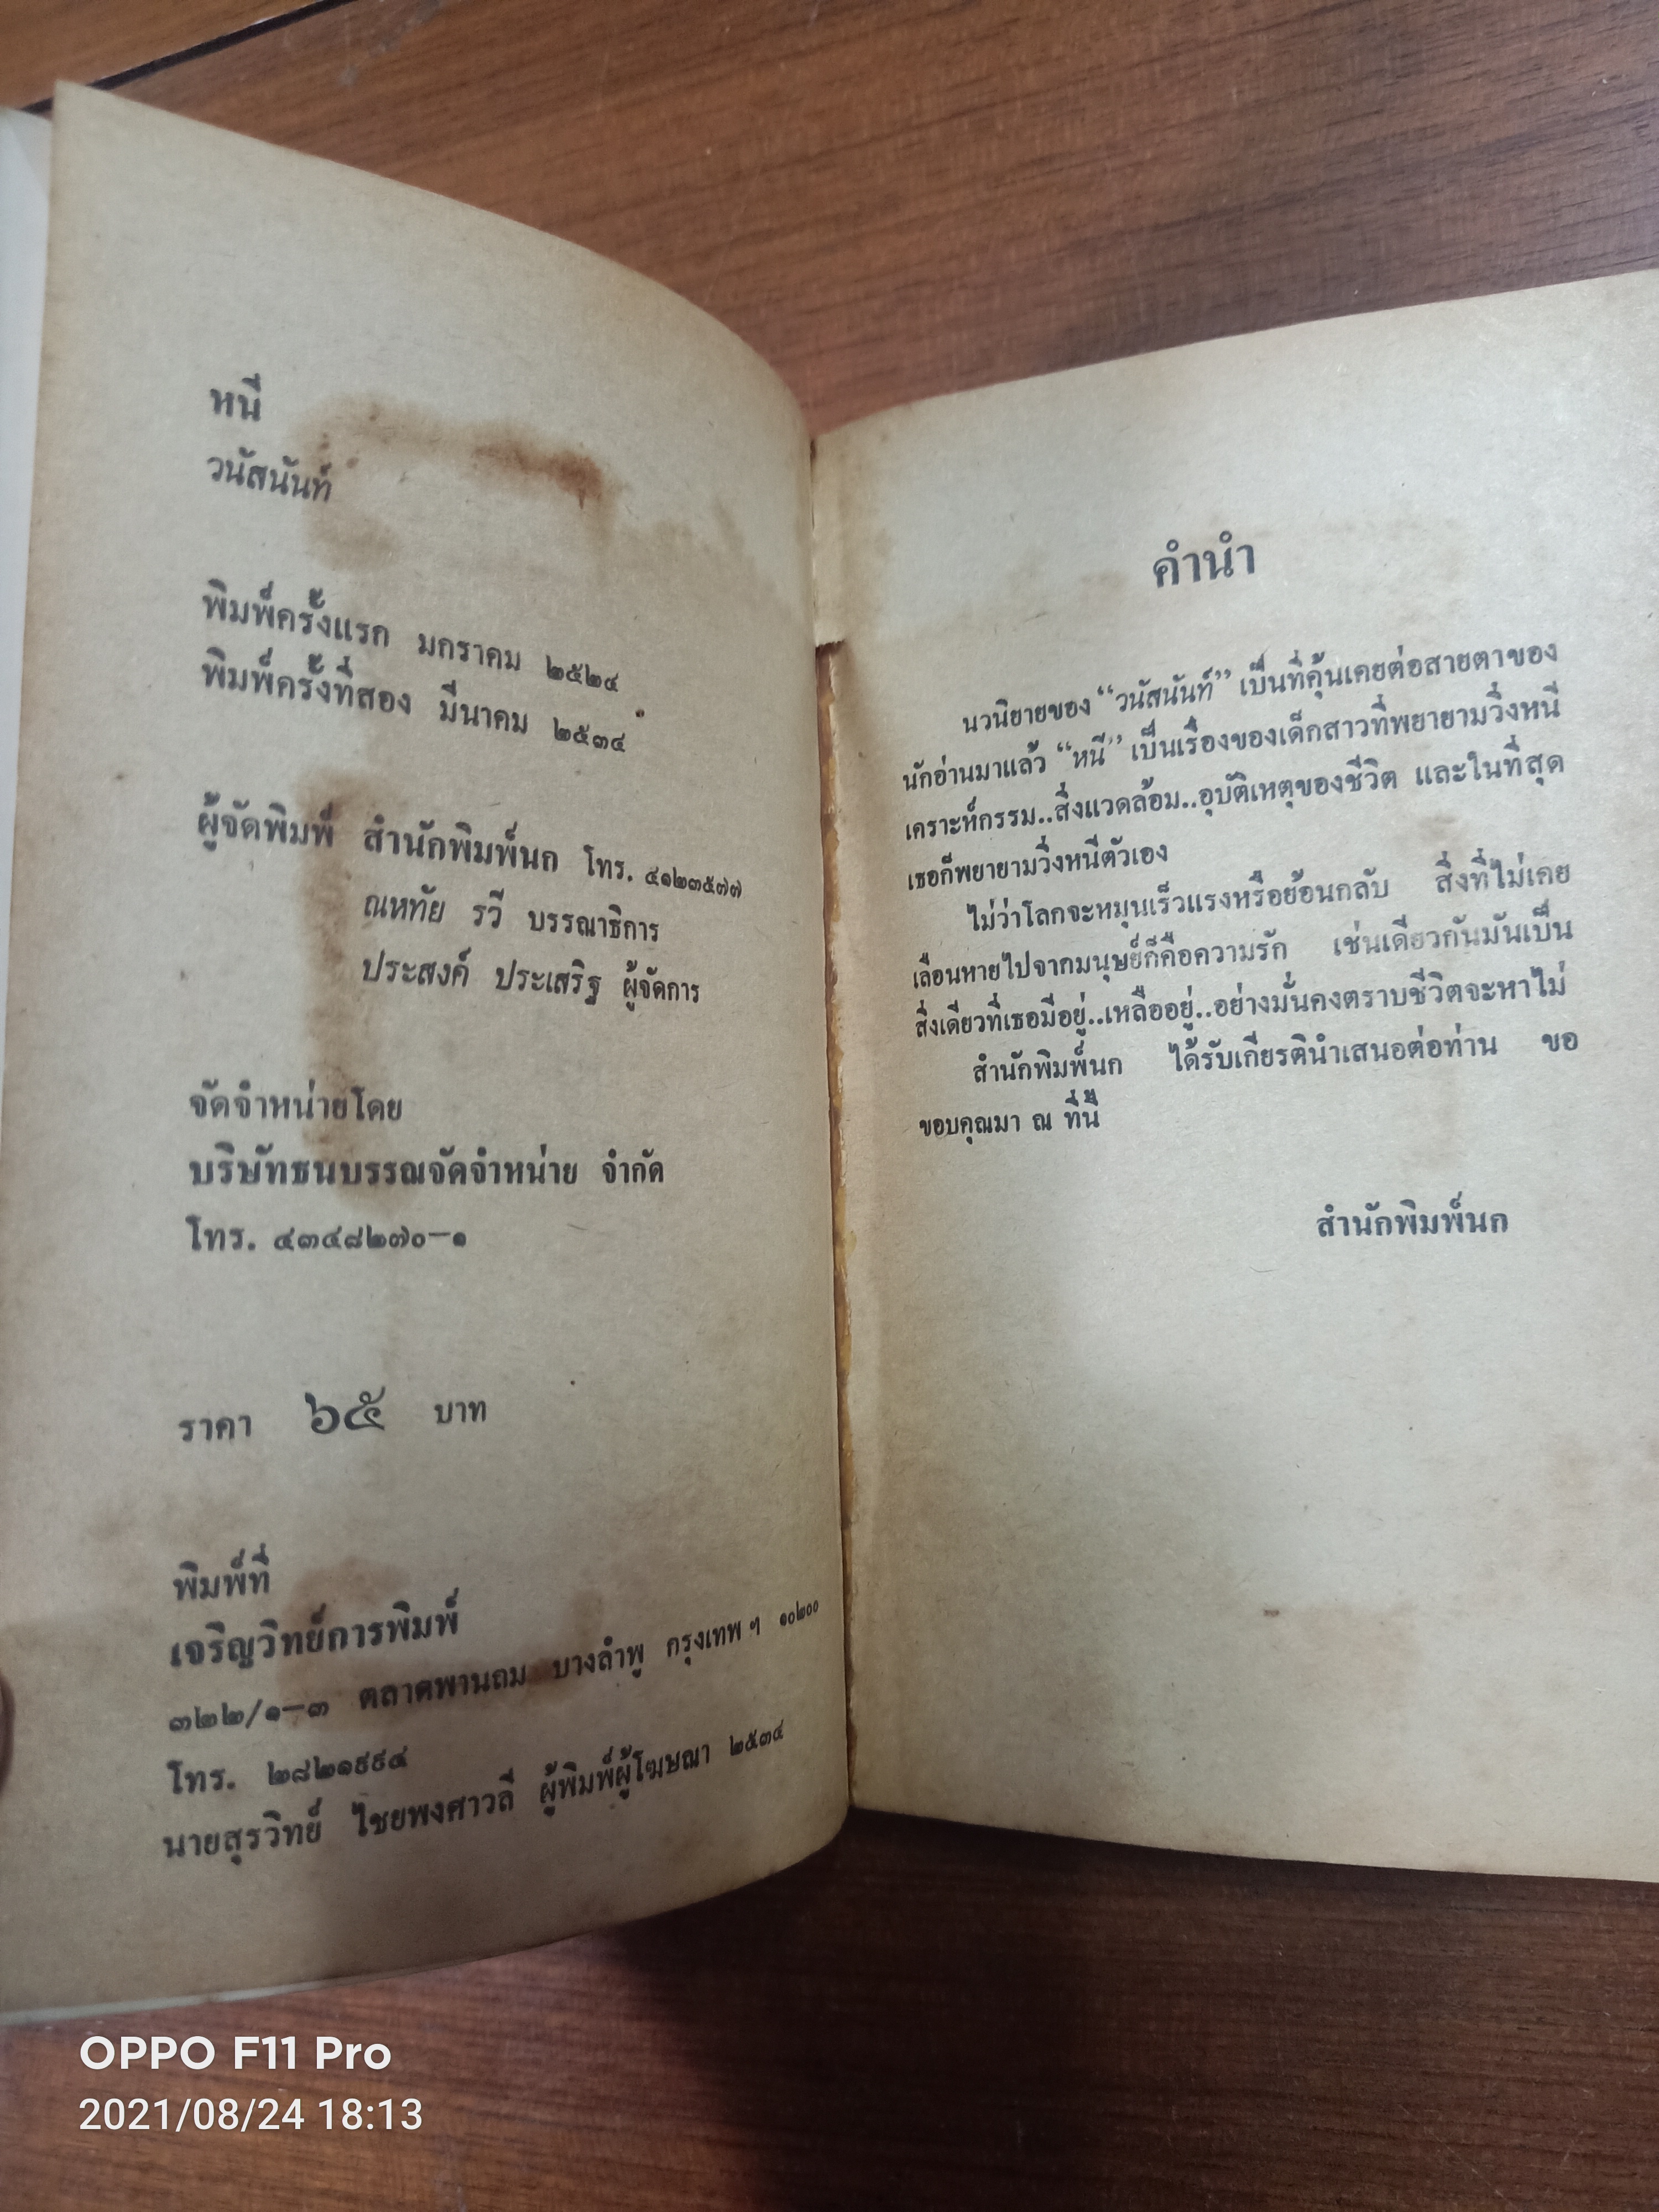 หนี
วนัสนันท์
พิมพ์ครั้งแรก มกราคม ๒๕๒๔
พิมพ์ครั้งที่สอง มีนาคม ๒๕๓๔
ผู้จัดพิมพ์ สำนักพิมพ์นก โทร. ๔๑๒๓๕๗๗
ณหทัย รวี บรรณาธิการ
ประสงค์ ประเสริฐ ผู้จัดการ
จัดจำหน่ายโดย
บริษัทธนบรรณจัดจำหน่าย จำกัด
โทร. ๔๓๔๘๒๗๐-๑
ราคา ๖๕ บาท
พิมพ์ที่
เจริญวิทย์การพิมพ์
๓๒๒/๑-๓ ตลาดพานถม บางลำพู กรุงเทพ ฯ ๑๐๒๐๐
โทร. ๒๘๒๑๙๙๔
นายสุรวิทย์ ไชยพงศาวลี ผู้พิมพ์ผู้โฆษณา ๒๕๓๔
คำนำ
นวนิยายของ “วนัสนันท์” เป็นที่คุ้นเคยต่อสายตาของ
นักอ่านมาแล้ว “หนี” เป็นเรื่องของเด็กสาวที่พยายามวิ่งหนี
เคราะห์กรรม..สิ่งแวดล้อม..อุบัติเหตุของชีวิต และในที่สุด
เธอก็พยายามวิ่งหนีตัวเอง
ไม่ว่าโลกจะหมุนเร็วแรงหรือย้อนกลับ สิ่งที่ไม่เคย
เลือนหายไปจากมนุษย์ก็คือความรัก เช่นเดียวกันมันเป็น
สิ่งเดียวที่เธอมีอยู่..เหลืออยู่..อย่างมั่นคงตราบชีวิตจะหาไม่
สำนักพิมพ์นก ได้รับเกียรตินำเสนอต่อท่าน ขอ
ขอบคุณมา ณ ที่นี้
สำนักพิมพ์นก
OPPO F11 Pro
2021/08/24 18:13